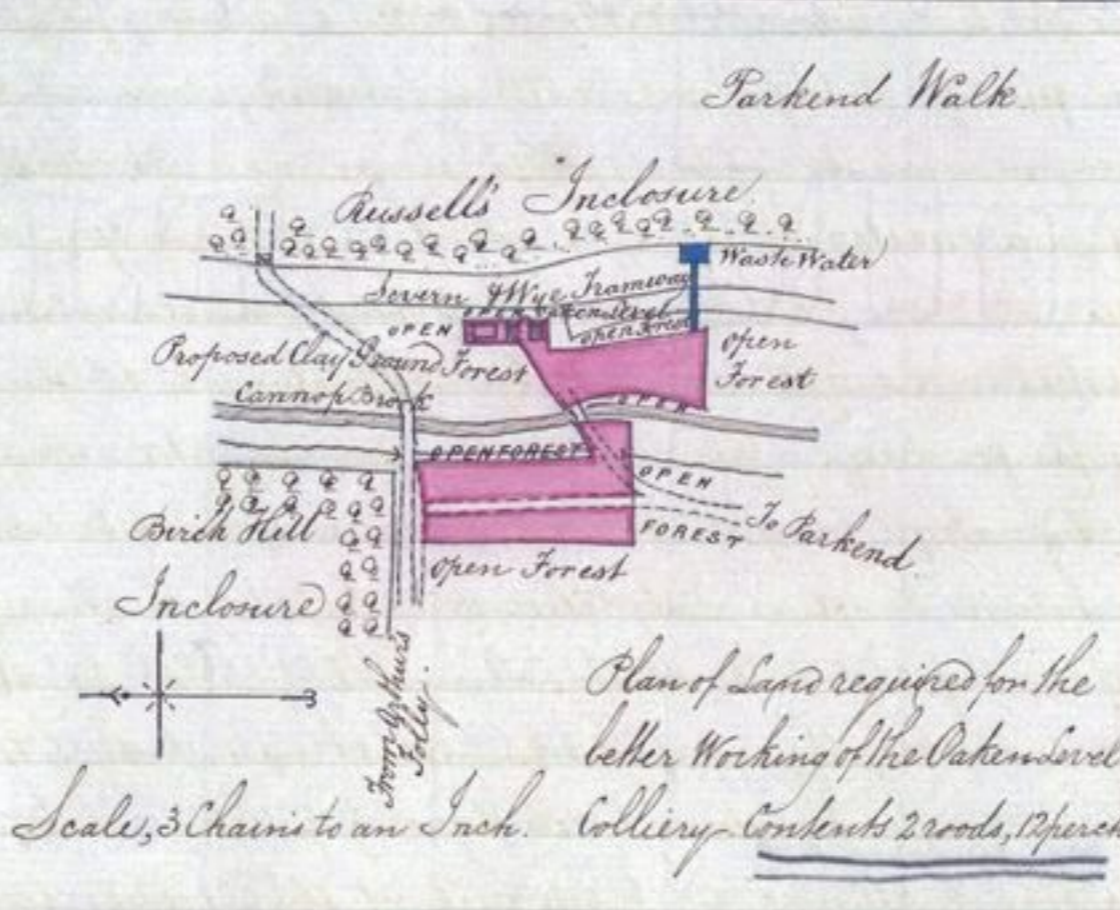 Parkend Walk
Russell's Inclosure
Waste Water
Severn & Wye Tramway
OPEN
Oaken Level
open Forest
open
Forest
Proposed Clay Ground Forest
Cannop Brook
OPEN
OPEN FOREST
OPEN
FOREST
To Parkend
Birch Hill
Inclosure
open Forest
From Arthur's
Folly.
Plan of Land required for the
better Working of the Oaken Level
Colliery Contents 2 roods, 12
Scale, 3 Chains to an Inch.